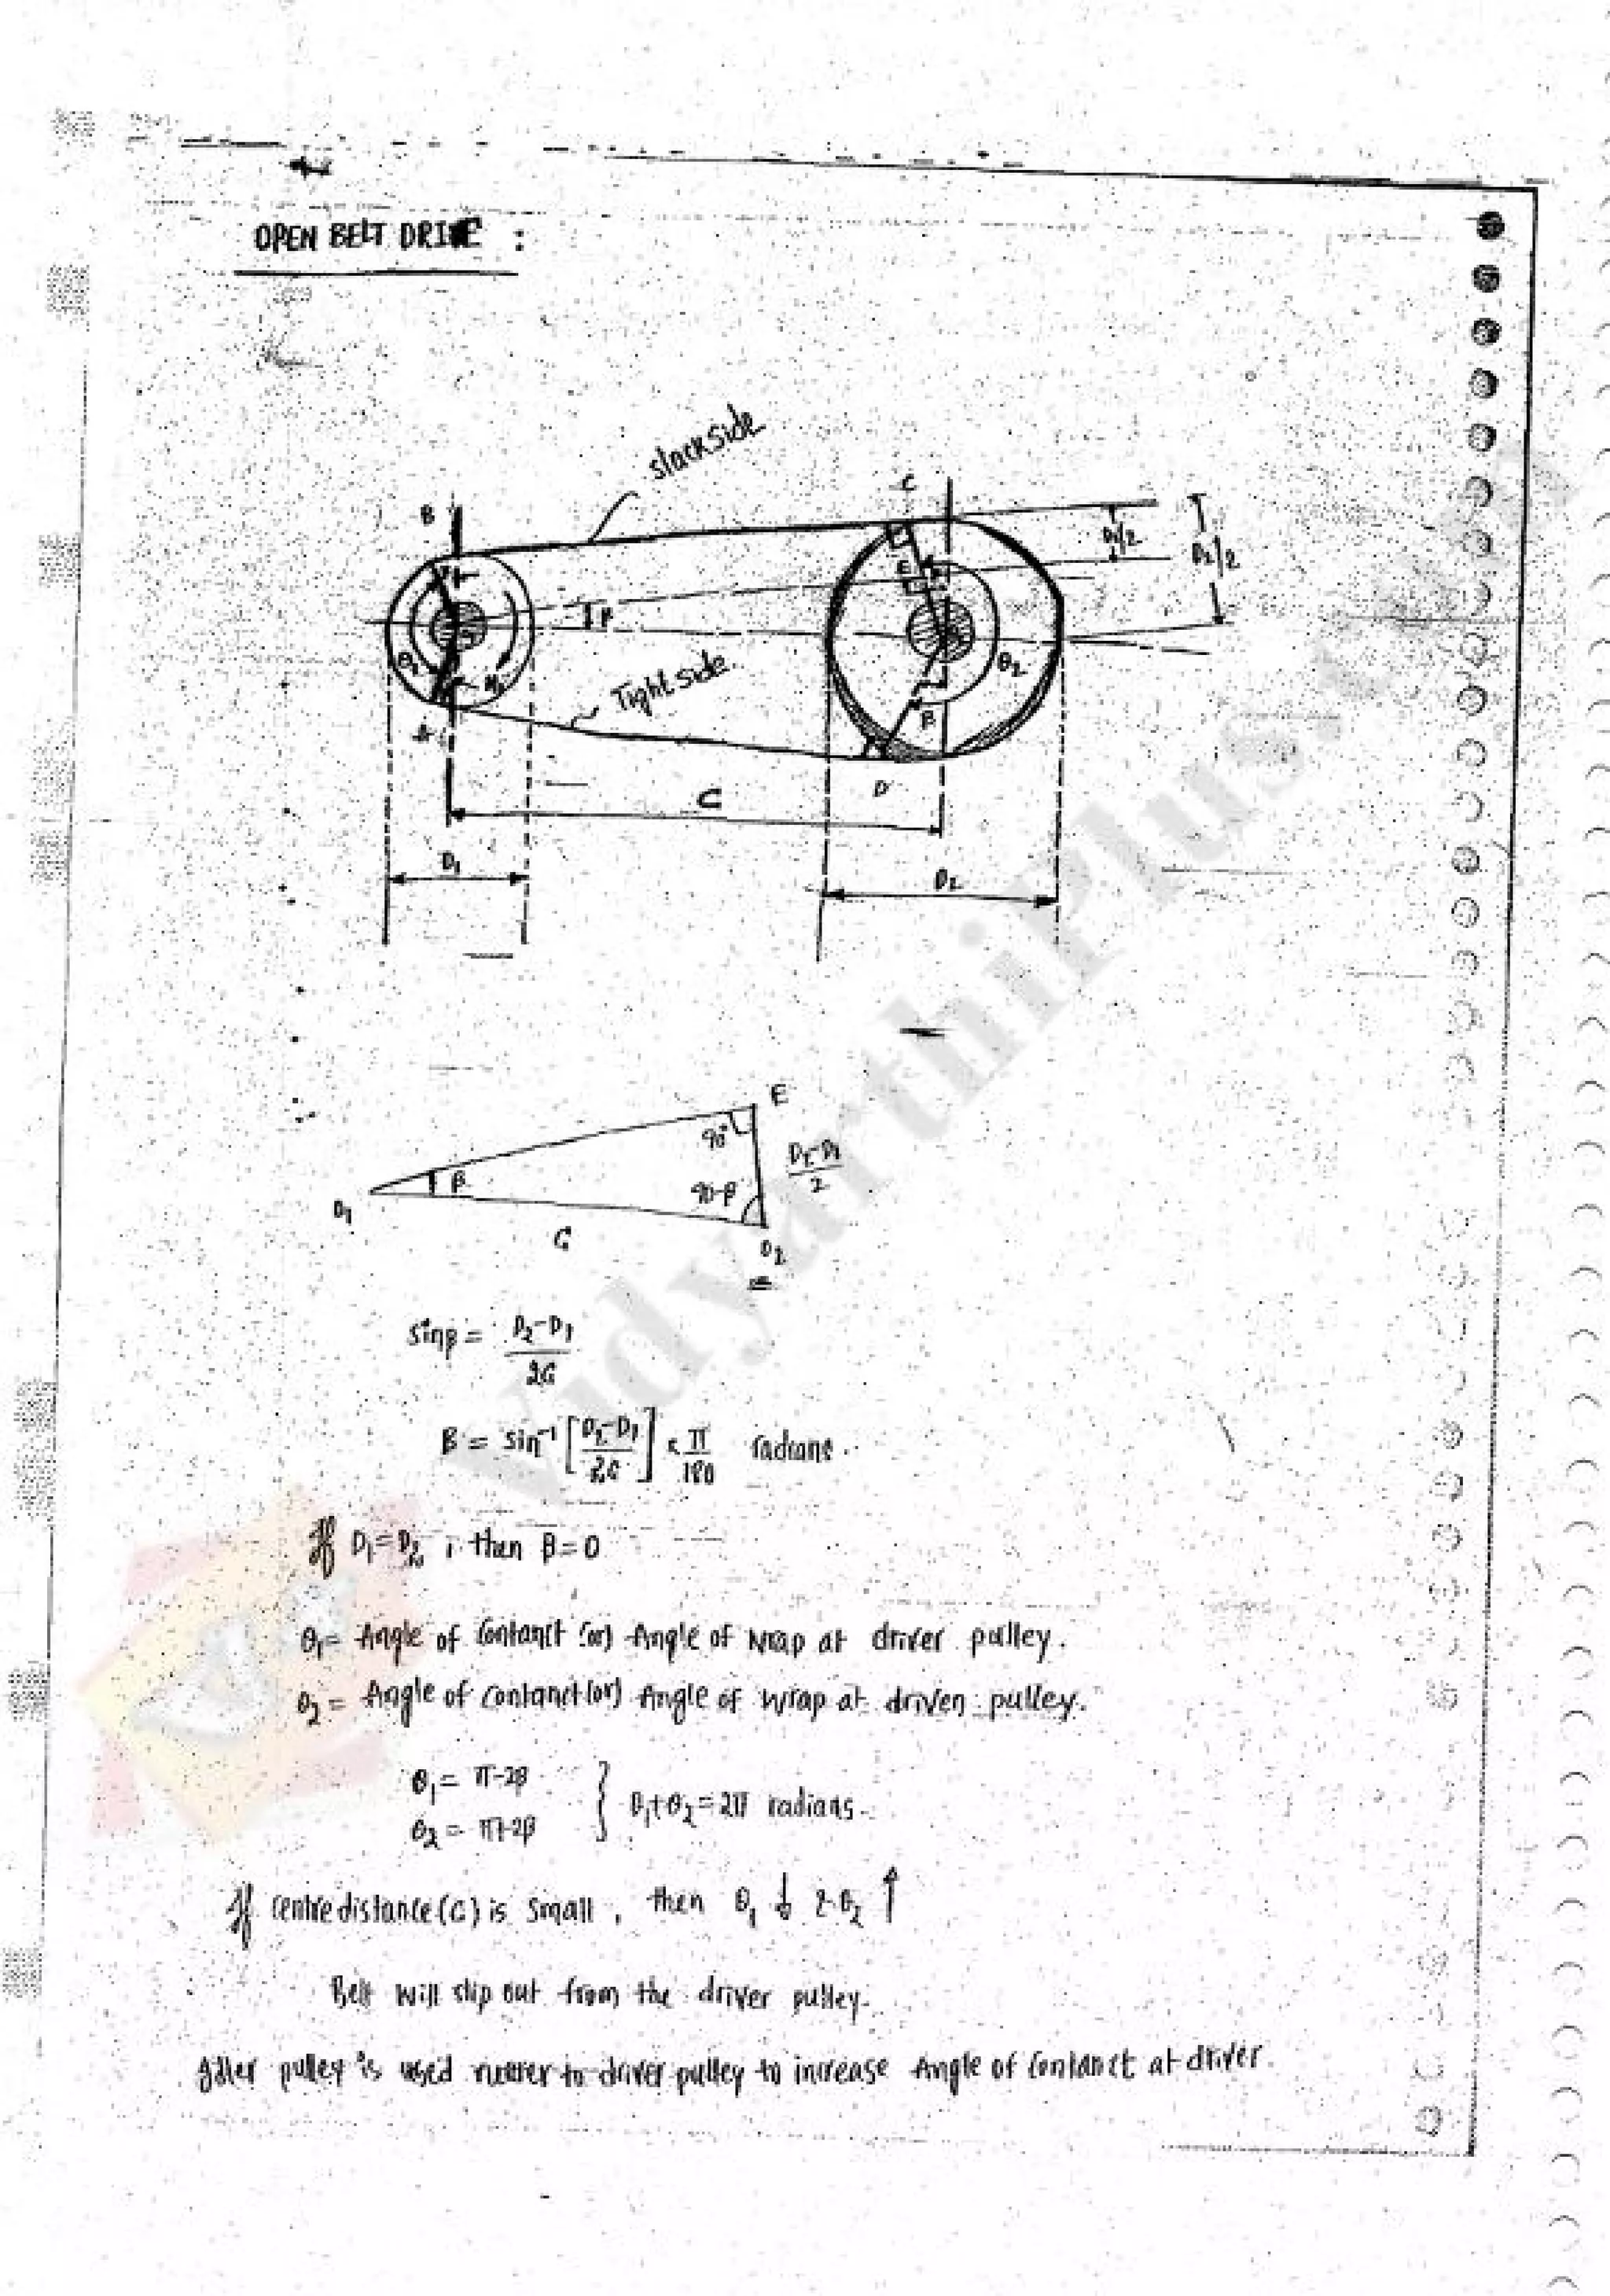 OPEN BELT DRIVE :
slackside
B
C
D1/2
D2/2
E
β
θ2
Tight side
β
D
C
D1
D2
E
90°
D2-D1
2
β
90-β
O1
C
O2
sinβ = D2-D1
2C
B = sin⁻¹ [D2-D1 / 2C] × π/180 radians.
If D1=D2, then β=0
θ1= Angle of Contanct (or) Angle of Wrap at driver pulley.
θ2 = Angle of Contanct (or) Angle of Wrap at driven pulley.
θ1 = π-2β
θ2 = π+2β } θ1+θ2=2π radians.
If Centre distance (C) is Small, then θ1 ↓ & θ2 ↑
Belt will slip out from the driver pulley.
Idler pulley is used nearer to driver pulley to increase Angle of Contanct at driver.